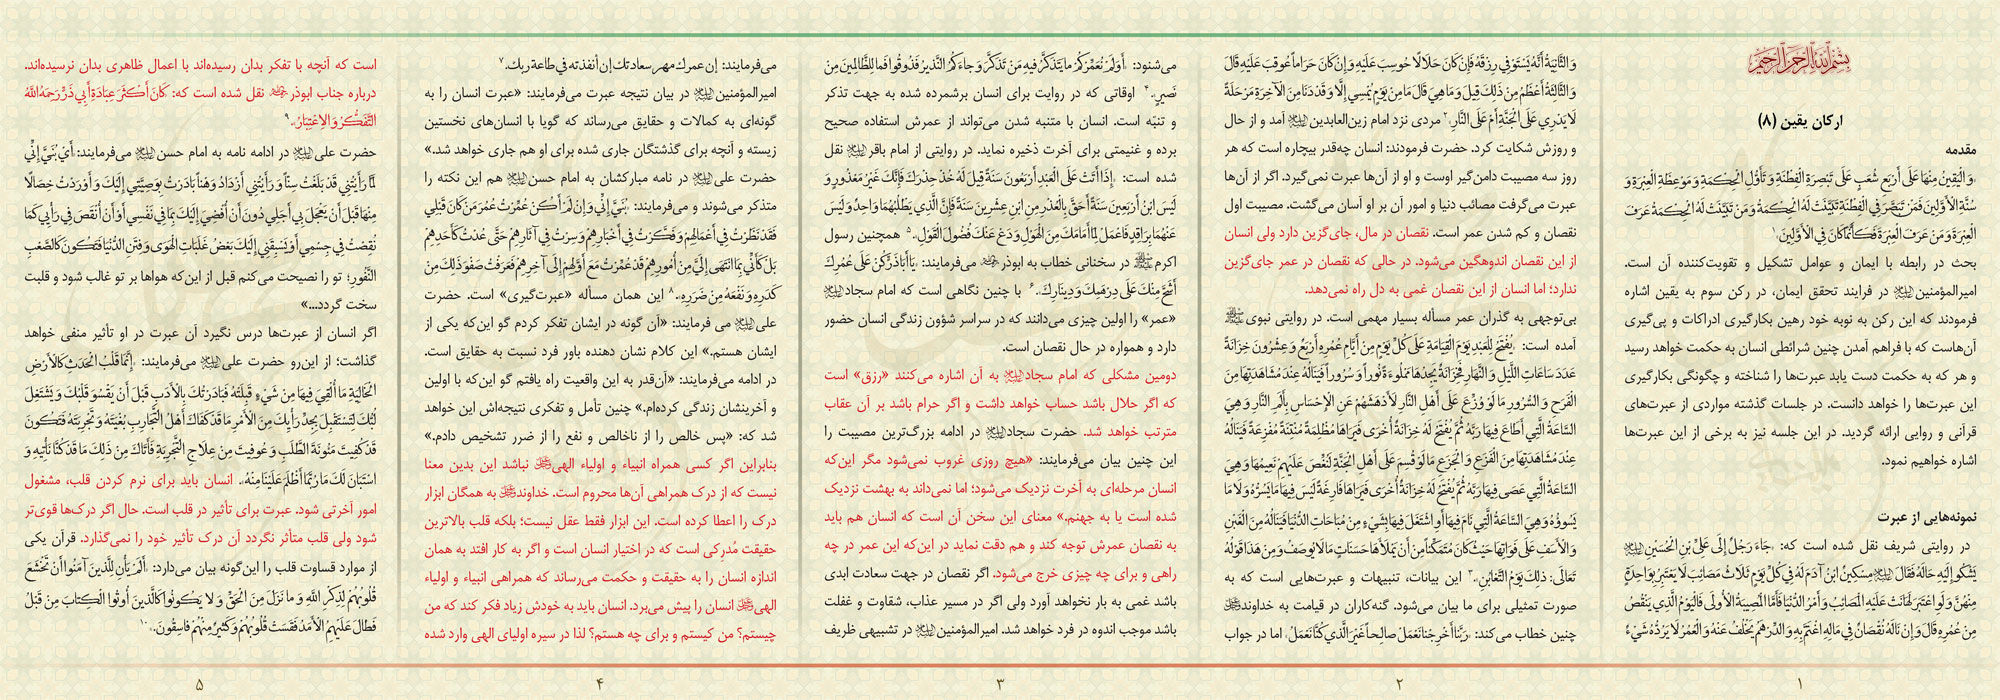 بِسْمِ اللهِ الرَّحْمٰنِ الرَّحِیمِ
ارکان یقین (۸)
مقدمه
«وَالْیَقِینُ مِنْهَا عَلَى أَرْبَعِ شُعَبٍ عَلَى تَبْصِرَةِ الْفِطْنَةِ وَ تَأَوُّلِ الْحِکْمَةِ وَ مَوْعِظَةِ الْعِبْرَةِ وَ
سُنَّةِ الْأَوَّلِینَ فَمَنْ تَبَصَّرَ فِی الْفِطْنَةِ تَبَیَّنَتْ لَهُ الْحِکْمَةُ وَ مَنْ تَبَیَّنَتْ لَهُ الْحِکْمَةُ عَرَفَ
الْعِبْرَةَ وَ مَنْ عَرَفَ الْعِبْرَةَ فَکَأَنَّمَا کَانَ فِی الْأَوَّلِینَ.»۱
بحث در رابطه با ایمان و عوامل تشکیل و تقویت‌کننده آن است.
امیرالمؤمنین علیه‌السلام در فرایند تحقق ایمان، در رکن سوم به یقین اشاره
فرمودند که این رکن به نوبه خود رهین بکارگیری ادراکات و پی‌گیری
آن‌هاست که با فراهم آمدن چنین شرائطی انسان به حکمت خواهد رسید
و هر که به حکمت دست یابد عبرت‌ها را شناخته و چگونگی بکارگیری
این عبرت‌ها را خواهد دانست. در جلسات گذشته مواردی از عبرت‌های
قرآنی و روایی ارائه گردید. در این جلسه نیز به برخی از این عبرت‌ها
اشاره خواهیم نمود.
نمونه‌هایی از عبرت
در روایتی شریف نقل شده است که: «جَاءَ رَجُلٌ إِلَى عَلِیِّ بْنِ الْحُسَیْنِ علیه‌السلام
یَشْکُو إِلَیْهِ حَالَهُ فَقَالَ علیه‌السلام مِسْکِینٌ ابْنُ آدَمَ لَهُ فِی کُلِّ یَوْمٍ ثَلَاثُ مَصَائِبَ لَا یَعْتَبِرُ بِوَاحِدَةٍ
مِنْهُنَّ وَ لَوِ اعْتَبَرَ لَهَانَتْ عَلَیْهِ الْمَصَائِبُ وَ أَمْرُ الدُّنْیَا فَأَمَّا الْمُصِیبَةُ الْأُولَى فَالْیَوْمُ الَّذِی یَنْقُصُ
مِنْ عُمُرِهِ قَالَ وَ إِنْ نَالَهُ نُقْصَانٌ فِی مَالِهِ اغْتَمَّ بِهِ وَ الدِّرْهَمُ یَخْلُفُ عَنْهُ وَ الْعُمُرُ لَا یَرُدُّهُ شَیْءٌ
۱
وَ الثَّانِیَةُ أَنَّهُ یَسْتَوْفِی رِزْقَهُ فَإِنْ کَانَ حَلَالًا حُوسِبَ عَلَیْهِ وَ إِنْ کَانَ حَرَاماً عُوقِبَ عَلَیْهِ قَالَ
وَ الثَّالِثَةُ أَعْظَمُ مِنْ ذَلِکَ قِیلَ وَ مَا هِیَ قَالَ مَا مِنْ یَوْمٍ یُمْسِی إِلَّا وَ قَدْ دَنَا مِنَ الْآخِرَةِ مَرْحَلَةً
لَا یَدْرِی عَلَى الْجَنَّةِ أَمْ عَلَى النَّارِ.»۲ مردی نزد امام زین‌العابدین علیه‌السلام آمد و از حال
و روزش شکایت کرد. حضرت فرمودند: انسان چه‌قدر بیچاره است که هر
روز سه مصیبت دامن‌گیر اوست و او از آن‌ها عبرت نمی‌گیرد. اگر از آن‌ها
عبرت می‌گرفت مصائب دنیا و امور آن بر او آسان می‌گشت. مصیبت اول
نقصان و کم شدن عمر است. نقصان در مال، جای‌گزین دارد ولی انسان
از این نقصان اندوهگین می‌شود. در حالی که نقصان در عمر جای‌گزین
ندارد؛ اما انسان از این نقصان غمی به دل راه نمی‌دهد.
بی‌توجهی به گذران عمر مسأله بسیار مهمی است. در روایتی نبوی ﷺ
آمده است: «یُفْتَحُ لِلْعَبْدِ یَوْمَ الْقِیَامَةِ عَلَى کُلِّ یَوْمٍ مِنْ أَیَّامِ عُمُرِهِ أَرْبَعٌ وَ عِشْرُونَ خِزَانَةً
عَدَدَ سَاعَاتِ اللَّیْلِ وَ النَّهَارِ فَخِزَانَةٌ یَجِدُهَا مَمْلُوءَةً نُوراً وَ سُرُوراً فَیَنَالُهُ عِنْدَ مُشَاهَدَتِهَا مِنَ
الْفَرَحِ وَ السُّرُورِ مَا لَوْ وُزِّعَ عَلَى أَهْلِ النَّارِ لَأَدْهَشَهُمْ عَنِ الْإِحْسَاسِ بِأَلَمِ النَّارِ وَ هِیَ
السَّاعَةُ الَّتِی أَطَاعَ فِیهَا رَبَّهُ ثُمَّ یُفْتَحُ لَهُ خِزَانَةٌ أُخْرَى فَیَرَاهَا مُظْلِمَةً مُنْتِنَةً مُفْزِعَةً فَیَنَالُهُ
عِنْدَ مُشَاهَدَتِهَا مِنَ الْفَزَعِ وَ الْجَزَعِ مَا لَوْ قُسِمَ عَلَى أَهْلِ الْجَنَّةِ لَنَغَّصَ عَلَیْهِمْ نَعِیمَهَا وَ هِیَ
السَّاعَةُ الَّتِی عَصَى فِیهَا رَبَّهُ ثُمَّ یُفْتَحُ لَهُ خِزَانَةٌ أُخْرَى فَیَرَاهَا فَارِغَةً لَیْسَ فِیهَا مَا یَسُرُّهُ وَ لَا مَا
یَسُوؤُهُ وَ هِیَ السَّاعَةُ الَّتِی نَامَ فِیهَا أَوِ اشْتَغَلَ فِیهَا بِشَیْءٍ مِنْ مُبَاحَاتِ الدُّنْیَا فَیَنَالُهُ مِنَ الْغَبْنِ
وَ الْأَسَفِ عَلَى فَوَاتِهَا حَیْثُ کَانَ مُتَمَکِّناً مِنْ أَنْ یَمْلَأَهَا حَسَنَاتٍ مَا لَا یُوصَفُ وَ مِنْ هَذَا قَوْلُهُ
تَعَالَى: ذلِکَ یَوْمُ التَّغابُنِ.»۳ این بیانات، تنبیهات و عبرت‌هایی است که به
صورت تمثیلی برای ما بیان می‌شود. گنه‌کاران در قیامت به خداوند
چنین خطاب می‌کند: «رَبَّنا أَخْرِجْنا نَعْمَلْ صالِحاً غَیْرَ الَّذی کُنَّا نَعْمَلُ» اما در جواب
۲
می‌شنود: «أَوَلَمْ نُعَمِّرْکُمْ ما یَتَذَکَّرُ فیهِ مَنْ تَذَکَّرَ وَ جاءَکُمُ النَّذیرُ فَذُوقُوا فَما لِلظَّالِمینَ مِنْ
نَصیرٍ.»۴ اوقاتی که در روایت برای انسان برشمرده شده به جهت تذکر
و تنبّه است. انسان با متنبه شدن می‌تواند از عمرش استفاده صحیح
برده و غنیمتی برای آخرت ذخیره نماید. در روایتی از امام باقر علیه‌السلام نقل
شده است: «إِذَا أَتَتْ عَلَى الْعَبْدِ أَرْبَعُونَ سَنَةً قِیلَ لَهُ خُذْ حِذْرَکَ فَإِنَّکَ غَیْرُ مَعْذُورٍ وَ
لَیْسَ ابْنُ أَرْبَعِینَ سَنَةً أَحَقَّ بِالْعُذْرِ مِنِ ابْنِ عِشْرِینَ سَنَةً فَإِنَّ الَّذِی یَطْلُبُهُمَا وَاحِدٌ وَ لَیْسَ
عَنْهُمَا بِرَاقِدٍ فَاعْمَلْ لِمَا أَمَامَکَ مِنَ الْهَوْلِ وَ دَعْ عَنْکَ فُضُولَ الْقَوْلِ.»۵ همچنین رسول
اکرم ﷺ در سخنانی خطاب به ابوذر می‌فرمایند: «یَا أَبَا ذَرٍّ کُنْ عَلَى عُمُرِکَ
أَشَحَّ مِنْکَ عَلَى دِرْهَمِکَ وَ دِینَارِکَ.»۶ با چنین نگاهی است که امام سجاد علیه‌السلام
«عمر» را اولین چیزی می‌دانند که در سراسر شؤون زندگی انسان حضور
دارد و همواره در حال نقصان است.
دومین مشکلی که امام سجاد علیه‌السلام به آن اشاره می‌کنند «رزق» است
که اگر حلال باشد حساب خواهد داشت و اگر حرام باشد بر آن عقاب
مترتب خواهد شد. حضرت سجاد علیه‌السلام در ادامه بزرگ‌ترین مصیبت را
این چنین بیان می‌فرمایند: «هیچ روزی غروب نمی‌شود مگر این‌که
انسان مرحله‌ای به آخرت نزدیک می‌شود؛ اما نمی‌داند به بهشت نزدیک
شده است یا به جهنم.» معنای این سخن آن است که انسان هم باید
به نقصان عمرش توجه کند و هم دقت نماید در این‌که این عمر در چه
راهی و برای چه چیزی خرج می‌شود. اگر نقصان در جهت سعادت ابدی
باشد غمی به بار نخواهد آورد ولی اگر در مسیر عذاب، شقاوت و غفلت
باشد موجب اندوه در فرد خواهد شد. امیرالمؤمنین علیه‌السلام در تشبیهی ظریف
۳
می‌فرمایند: «إن عمرك مهر سعادتك إن أنفذته في طاعة ربك.»۷
امیرالمؤمنین علیه‌السلام در بیان نتیجه عبرت می‌فرمایند: «عبرت انسان را به
گونه‌ای به کمالات و حقایق می‌رساند که گویا با انسان‌های نخستین
زیسته و آنچه برای گذشتگان جاری شده برای او هم جاری خواهد شد.»
حضرت علی علیه‌السلام در نامه مبارکشان به امام حسن علیه‌السلام هم این نکته را
متذکر می‌شوند و می‌فرمایند: «بُنَیَّ إِنِّی وَ إِنْ لَمْ أَکُنْ عُمِّرْتُ عُمُرَ مَنْ کَانَ قَبْلِی
فَقَدْ نَظَرْتُ فِی أَعْمَالِهِمْ وَ فَکَّرْتُ فِی أَخْبَارِهِمْ وَ سِرْتُ فِی آثَارِهِمْ حَتَّى عُدْتُ کَأَحَدِهِمْ
بَلْ کَأَنِّی بِمَا انْتَهَى إِلَیَّ مِنْ أُمُورِهِمْ قَدْ عُمِّرْتُ مَعَ أَوَّلِهِمْ إِلَى آخِرِهِمْ فَعَرَفْتُ صَفْوَ ذَلِکَ مِنْ
کَدَرِهِ وَ نَفْعَهُ مِنْ ضَرَرِهِ.»۸ این همان مسأله «عبرت‌گیری» است. حضرت
علی علیه‌السلام می فرمایند: «آن گونه در ایشان تفکر کردم گو این‌که یکی از
ایشان هستم.» این کلام نشان دهنده باور فرد نسبت به حقایق است.
در ادامه می‌فرمایند: «آن‌قدر به این واقعیت راه یافتم گو این‌که با اولین
و آخرینشان زندگی کرده‌ام.» چنین تأمل و تفکری نتیجه‌اش این خواهد
شد که: «پس خالص را از ناخالص و نفع را از ضرر تشخیص دادم.»
بنابراین اگر کسی همراه انبیاء و اولیاء الهی نباشد این بدین معنا
نیست که از درک همراهی آن‌ها محروم است. خداوند به همگان ابزار
درک را اعطا کرده است. این ابزار فقط عقل نیست؛ بلکه قلب بالاترین
حقیقت مُدرِکی است که در اختیار انسان است و اگر به کار افتد به همان
اندازه انسان را به حقیقت و حکمت می‌رساند که همراهی انبیاء و اولیاء
الهی انسان را پیش می‌برد. انسان باید به خودش زیاد فکر کند که من
چیستم؟ من کیستم و برای چه هستم؟ لذا در سیره اولیای الهی وارد شده
۴
است که آنچه با تفکر بدان رسیده‌اند با اعمال ظاهری بدان نرسیده‌اند.
درباره جناب ابوذر نقل شده است که: «کَانَ أَکْثَرُ عِبَادَةِ أَبِی ذَرٍّ رَحِمَهُ اللَّهُ
التَّفَکُّرَ وَ الِاعْتِبَارَ.»۹
حضرت علی علیه‌السلام در ادامه نامه به امام حسن علیه‌السلام می‌فرمایند: «أَیْ بُنَیَّ إِنِّی
لَمَّا رَأَیْتُنِی قَدْ بَلَغْتُ سِنّاً وَ رَأَیْتُنِی أَزْدَادُ وَهْناً بَادَرْتُ بِوَصِیَّتِی إِلَیْکَ وَ أَوْرَدْتُ خِصَالًا
مِنْهَا قَبْلَ أَنْ یَعْجَلَ بِی أَجَلِی دُونَ أَنْ أُفْضِیَ إِلَیْکَ بِمَا فِی نَفْسِی أَوْ أَنْ أُنْقَصَ فِی رَأْیِی کَمَا
نُقِصْتُ فِی جِسْمِی أَوْ یَسْبِقَنِی إِلَیْکَ بَعْضُ غَلَبَاتِ الْهَوَى وَ فِتَنِ الدُّنْیَا فَتَکُونَ کَالصَّعْبِ
النَّفُورِ؛ تو را نصیحت می‌کنم قبل از این‌که هواها بر تو غالب شود و قلبت
سخت گردد...»
اگر انسان از عبرت‌ها درس نگیرد آن عبرت در او تأثیر منفی خواهد
گذاشت؛ از این‌رو حضرت علی علیه‌السلام می‌فرمایند: «إِنَّمَا قَلْبُ الْحَدَثِ کَالْأَرْضِ
الْخَالِیَةِ مَا أُلْقِیَ فِیهَا مِنْ شَیْءٍ قَبِلَتْهُ فَبَادَرْتُکَ بِالْأَدَبِ قَبْلَ أَنْ یَقْسُوَ قَلْبُکَ وَ یَشْتَغِلَ
لُبُّکَ لِتَسْتَقْبِلَ بِجِدِّ رَأْیِکَ مِنَ الْأَمْرِ مَا قَدْ کَفَاکَ أَهْلُ التَّجَارِبِ بُغْیَتَهُ وَ تَجْرِبَتَهُ فَتَکُونَ
قَدْ کُفِیتَ مَئُونَةَ الطَّلَبِ وَ عُوفِیتَ مِنْ عِلَاجِ التَّجْرِبَةِ فَأَتَاکَ مِنْ ذَلِکَ مَا قَدْ کُنَّا نَأْتِیهِ وَ
اسْتَبَانَ لَکَ مَا رُبَّمَا أَظْلَمَ عَلَیْنَا مِنْهُ». انسان باید برای نرم کردن قلب، مشغول
امور آخرتی شود. عبرت برای تأثیر در قلب است. حال اگر درک‌ها قوی‌تر
شود ولی قلب متأثر نگردد آن درک تأثیر خود را نمی‌گذارد. قرآن یکی
از موارد قساوت قلب را این‌گونه بیان می‌دارد: «أَلَمْ یَأْنِ لِلَّذینَ آمَنُوا أَنْ تَخْشَعَ
قُلُوبُهُمْ لِذِکْرِ اللَّهِ وَ ما نَزَلَ مِنَ الْحَقِّ وَ لا یَکُونُوا کَالَّذینَ أُوتُوا الْکِتابَ مِنْ قَبْلُ
فَطالَ عَلَیْهِمُ الْأَمَدُ فَقَسَتْ قُلُوبُهُمْ وَ کَثیرٌ مِنْهُمْ فاسِقُونَ.»۱۰
۵